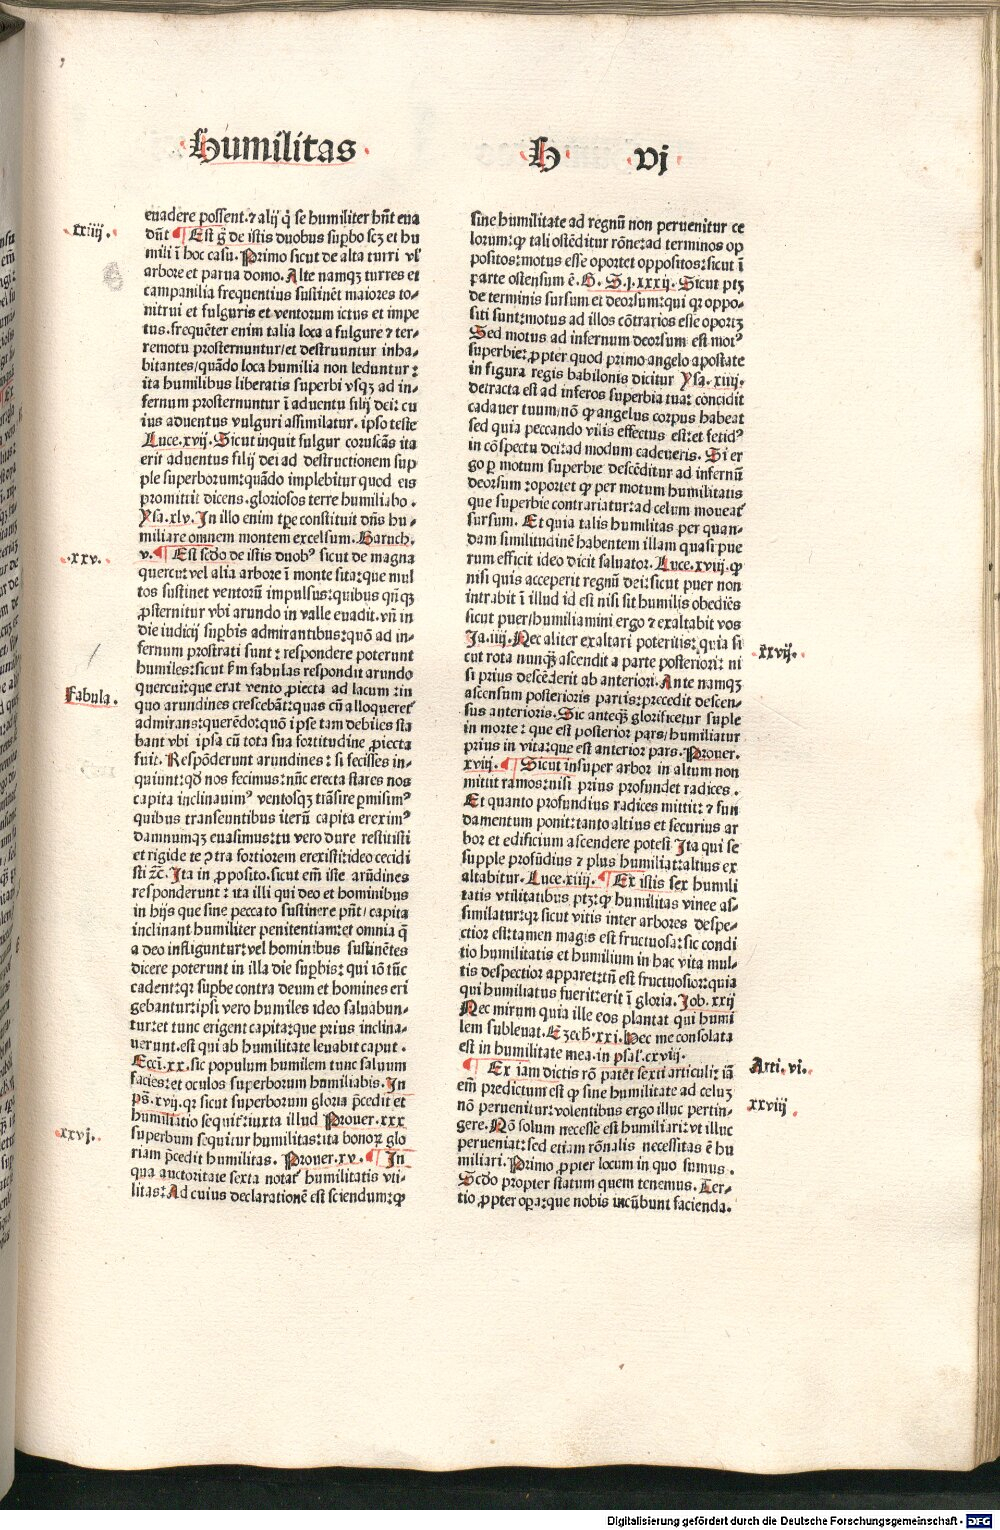 Humilitas
H
vj
euadere possent.⁊ alij q̇ se humiliter hñt eua
xxiiij.
dñt ¶ Est g̊ de istis duobus suꝑbo scꝫ et hu
mili ī hoc casu. Primo sicut de alta turri vl̓
arbore et parua domo. Alte namqꝫ turres et
campanilia frequentius sustinēt maiores to⸗
nitrui et fulguris et ventorum ictus et impe
tus.frequēter enim talia loca a fulgure ⁊ ter⸗
remotu prosternuntur/et destruuntur inha⸗
bitantes/quādo loca humilia non leduntur:
ita humilibus liberatis superbi vsqꝫ ad in⸗
fernum prosternuntur ī aduentu filij dei: cu
ius aduentus vulguri assimilatur. ipso teste
Luce.xvij. Sicut inquit fulgur coruscās ita
erit aduentus filij dei ad destructionem sup
ple superborum:quādo implebitur quod eis
promittit dicens.gloriosos terre humiliabo.
Ysa.xlv. In illo enim tꝑe constituit dñs hu⸗
miliare omnem montem excelsum. Baruch.
xxv.
v. ¶ Est scd̓o de istis duobꝰ sicut de magna
quercu:vel alia arbore ī monte sita:que mul
tos sustinet ventorū impulsus:quibus qñqꝫ
ꝓsternitur vbi arundo in valle euadit. vñ in
die iudicij suꝑbis admirantibus:quō ad in⸗
fernum prostrati sunt: respondere poterunt
humiles:sicut ẜm fabulas respondit arundo
Fabula.
quercui:que erat vento ꝓiecta ad lacum:in
quo arundines crescebāt:quas cū alloqueret̉
admirans:querēdo:quō ipse tam debiles sta
bant vbi ipsa cū tota sua fortitudine ꝓiecta
fuit. Respōderunt arundines: si fecisses in⸗
quiunt:qd̓ nos fecimus:nūc erecta stares nos
capita inclinauimꝰ ventosqꝫ trāsire ꝑmisimꝰ
quibus transeuntibus iterū capita ereximꝰ
damnumqꝫ euasimus:tu vero dure restitisti
et rigide te ꝯtra fortiorem erexisti:ideo cecidi
sti ⁊c̄. Ita in ꝓposito.sicut em̄ iste arūdines
responderunt: ita illi qui deo et hominibus
in hijs que sine peccato sustinere pñt/capita
inclinant humiliter penitentiam:et omnia q̄
a deo infligantur:vel hominibus sustinētes
dicere poterunt in illa die suꝑbis: qui iō tūc
cadent:qr suꝑbe contra deum et homines eri
gebantur:ipsi vero humiles ideo saluabun⸗
tur:et tunc erigent capita:que prius inclina⸗
uerunt.est qui ab humilitate leuabit caput.
Ecci̓.xx.sic populum humilem tunc saluum
facies:et oculos superborum humiliabis. In
pš.xvij.qr sicut superborum gloria p̄cedit et
humiliatio sequit̉:iuxta illud Prouer.xxx
xxvj.
superbum sequitur humilitas:ita bonoꝝ glo
riam p̄cedit humilitas. Prouer.xv. ¶ In
qua auctoritate sexta notat̉ humilitatis vti⸗
litas: Ad cuius declarationē est sciendum:ꝙ
sine humilitate ad regnū non peruenitur ce
lorum:ꝙ tali ostēditur rōne:ad terminos op
positos:motus esse oportet oppositos:sicut ī
parte ostensum ē. H. S.j.xxxij. Sicut ptꝫ
de terminis sursum et deorsum:qui qr oppo⸗
siti sunt:motus ad illos cōtrarios esse oportꝫ
Sed motus ad infernum deorsum est motꝰ
superbie:ꝓpter quod primo angelo apostate
in figura regis babilonis dicitur Ysa.xiiij.
detracta est ad inferos superbia tua: concidit
cadauer tuum/nō ꝙ angelus corpus habeat
sed quia peccando vilis effectus est:et fetidꝰ
in cōspectu dei:ad modum cadeueris. Si er
go ꝑ motum superbie descēditur ad infernū
deorsum:oportet ꝙ per motum humilitatis
que superbie contrariatur:ad celum moueat̉
sursum. Et quia talis humilitas per quan⸗
dam similitudinē habentem illam quasi pue
rum efficit ideo dicit saluator. Luce.xviij.ꝙ
nisi quis acceperit regnū dei:sicut puer non
intrabit ī illud id est nisi sit humilis obediēs
sicut puer/humiliamini ergo ⁊ exaltabit vos
xxvij.
Ja.iiij. Nec aliter exaltari poteritis:quia si
cut rota nunqꝫ ascendit a parte posteriori: ni
si prius descēderit ab anteriori. Ante namqꝫ
ascensum posterioris partis:precedit descen⸗
sus anterioris. Sic anteqꝫ glorificetur suple
in morte: que est posterior pars/humiliatur
prius in vita:que est anterior pars. Prouer.
xviij. ¶ Sicut insuper arbor in altum non
mittit ramos:nisi prius profundet radices.
Et quanto profundius radices mittit: ⁊ fun
damentum ponit:tanto altius et securius ar
bor et edificium ascendere potest Ita qui se
supple profūdius ⁊ plus humiliat:altius ex
altabitur. Luce.xiiij. ¶ Ex istis sex humili
tatis vtilitatibus ptꝫ:ꝙ humilitas vinee as⸗
similatur:qr sicut vitis inter arbores despe⸗
ctior est:tamen magis est fructuosa:sic condi
tio humilitatis et humilium in hac vita mul⸗
tis despectior apparet:tñ est fructuosior:quia
qui humiliatus fuerit:erit ī gloria. Job.xxij
Nec mirum quia ille eos plantat qui humi
lem subleuat. Ezech.xxi. Hec me consolata
est in humilitate mea.in psal̓.cxviij.
Arti.vi.
¶ Ex iam dictis rō patet sexti articuli: iā
em̄ predictum est ꝙ sine humilitate ad celuꝫ
xxviij
nō peruenitur:volentibus ergo illuc pertin⸗
gere. Nō solum necesse est humiliari:vt illuc
perueniat:sed etiam rōnalis necessitas ē hu
miliari. Primo ꝓpter locum in quo sumus.
Scd̓o propter statum quem tenemus. Ter⸗
tio ꝓpter oꝑa:que nobis incūbunt facienda.
Digitalisierung gefördert durch die Deutsche Forschungsgemeinschaft - DFG